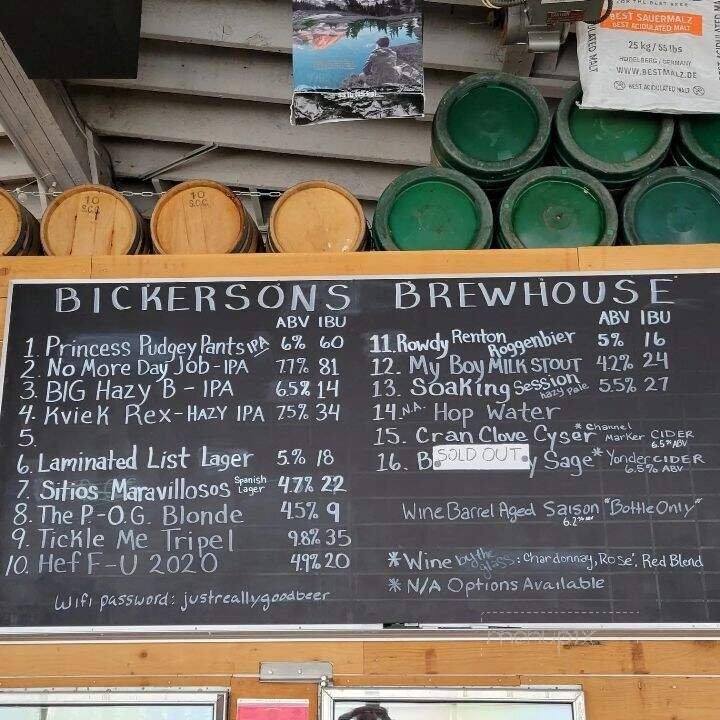 FOR THE BEST BEER
BEST SAUERMALZ
BEST ACIDULATED MALT
25 kg/55 lbs
HEIDELBERG / GERMANY
WWW.BESTMALZ.DE
BEST ACIDULATED MALT
10
S.C.C.
10
S.C.C.
BICKERSONS BREWHOUSE
ABV IBU
1. Princess Pudgey Pants IPA 6% 60
2. No More Day Job - IPA 7.7% 81
3. BIG Hazy B - IPA 6.5% 14
4. Kviek Rex - HAZY IPA 7.5% 34
5.
6. Laminated List Lager 5.% 18
7. Sitios Maravillosos Spanish Lager 4.7% 22
8. The P.-O.G. Blonde 4.5% 9
9. Tickle Me Tripel 9.8% 35
10. Hef F-U 2020 4.9% 20
Wifi password: justreallygoodbeer
ABV IBU
11. Rowdy Renton Roggenbier 5% 16
12. My Boy MILK STOUT 4.2% 24
13. Soaking Session hazy Pale 5.5% 27
14. N.A. Hop Water
15. Cran Clove Cyser *Channel Marker CIDER 6.5% ABV
16. B SOLD OUT y Sage *Yonder CIDER 6.5% ABV
Wine Barrel Aged Saison "Bottle Only"
6.2% ABV
* Wine by the glass: Chardonnay, Rosé, Red Blend
* N/A Options Available
menupix